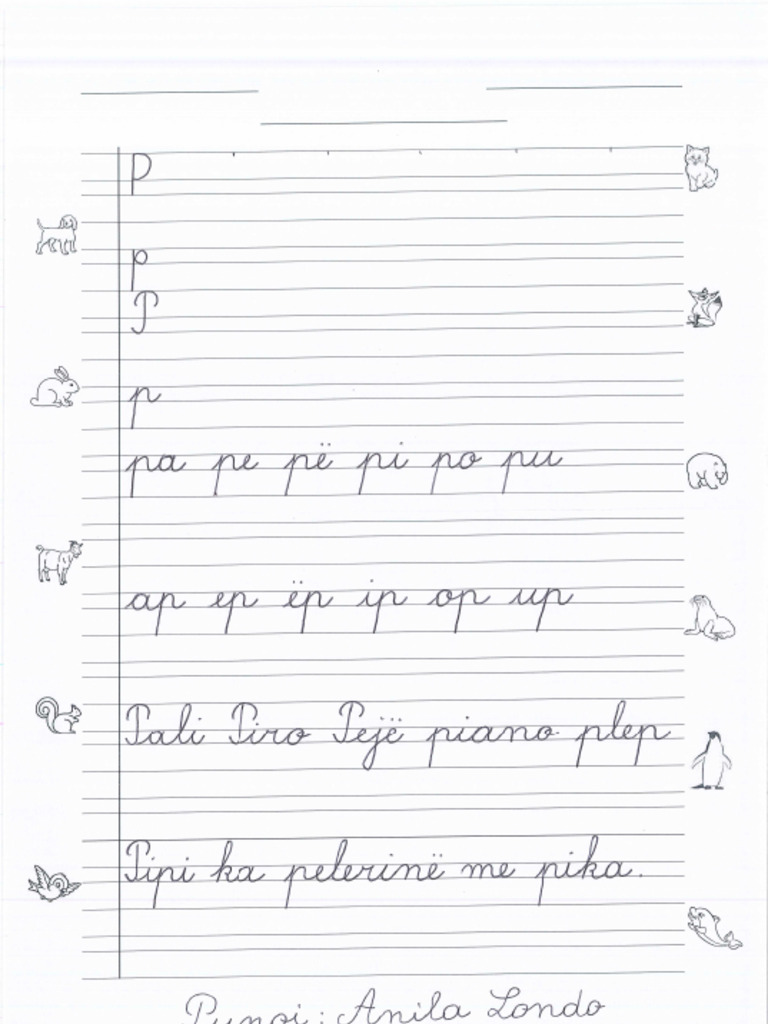 P
p
P
p
pa pe pë pi po pu
ap ep ëp ip op up
Pali Piro Pejë piano plep
Pipi ka pelerinë me pika.
Punoi: Anila Londo